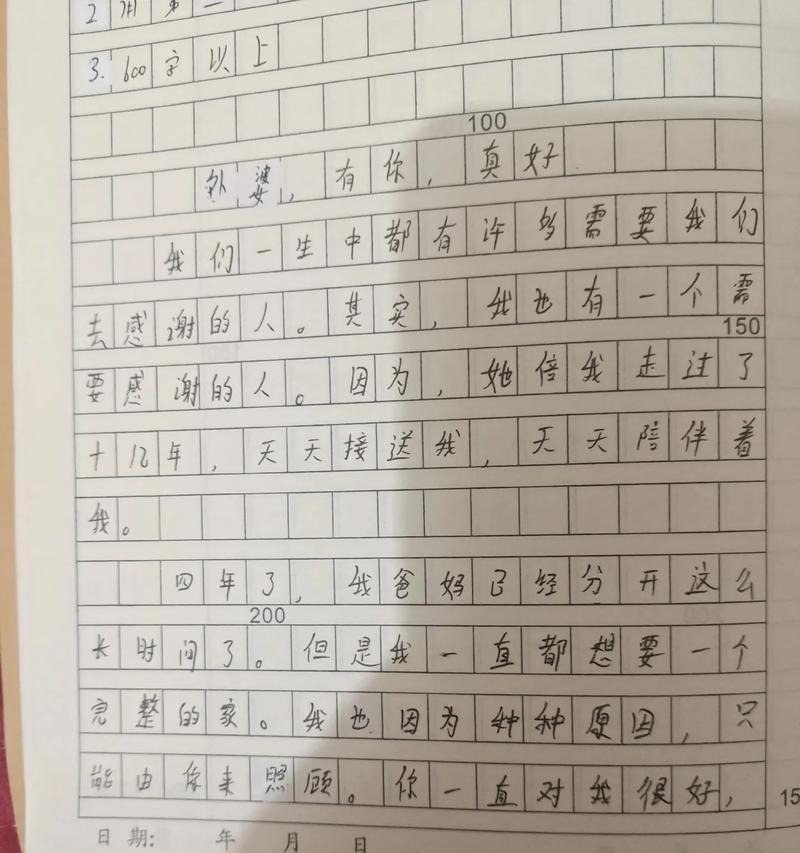 2 用第二
3. 600字以上
100
外婆，有你，真好
我们一生中都有许多需要我们
去感谢的人。其实，我也有一个需
150
要感谢的人。因为，她倍我走过了
十几年，天天接送我，天天陪伴着
我。
四年了，我爸妈已经分开这么
200
长时间了。但是我一直都想要一个
完整的家。我也因为种种原因，只
能由你来照顾。你一直对我很好，
15
日期： 年 月 日